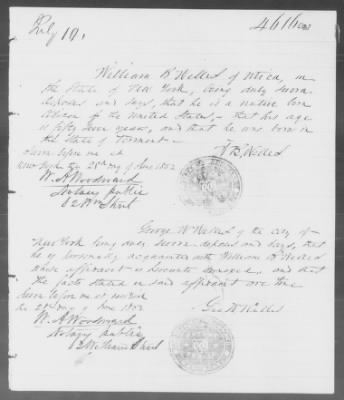 July 10,
4616
William B Welles of Utica, in
the State of New York, being duly sworn
deposes and says, that he is a native born
Citizen of the United States - that his age
is fifty four years, and that he was born in
the State of Vermont -
Sworn before me at
New York the 21st day of June 1852
B. Welles
W. A. Woodward
Notary Public
62 Wm Street
George W Welles of the city of
New York being duly sworn deposes and says, that
he is personally acquainted with William B Welles
whose affidavit is hereunto annexed, and that
the facts stated in said affidavit are true
Sworn before me at
the 21st day of June 1852
Geo W Welles
W. A. Woodward
Notary Public
62 William Street